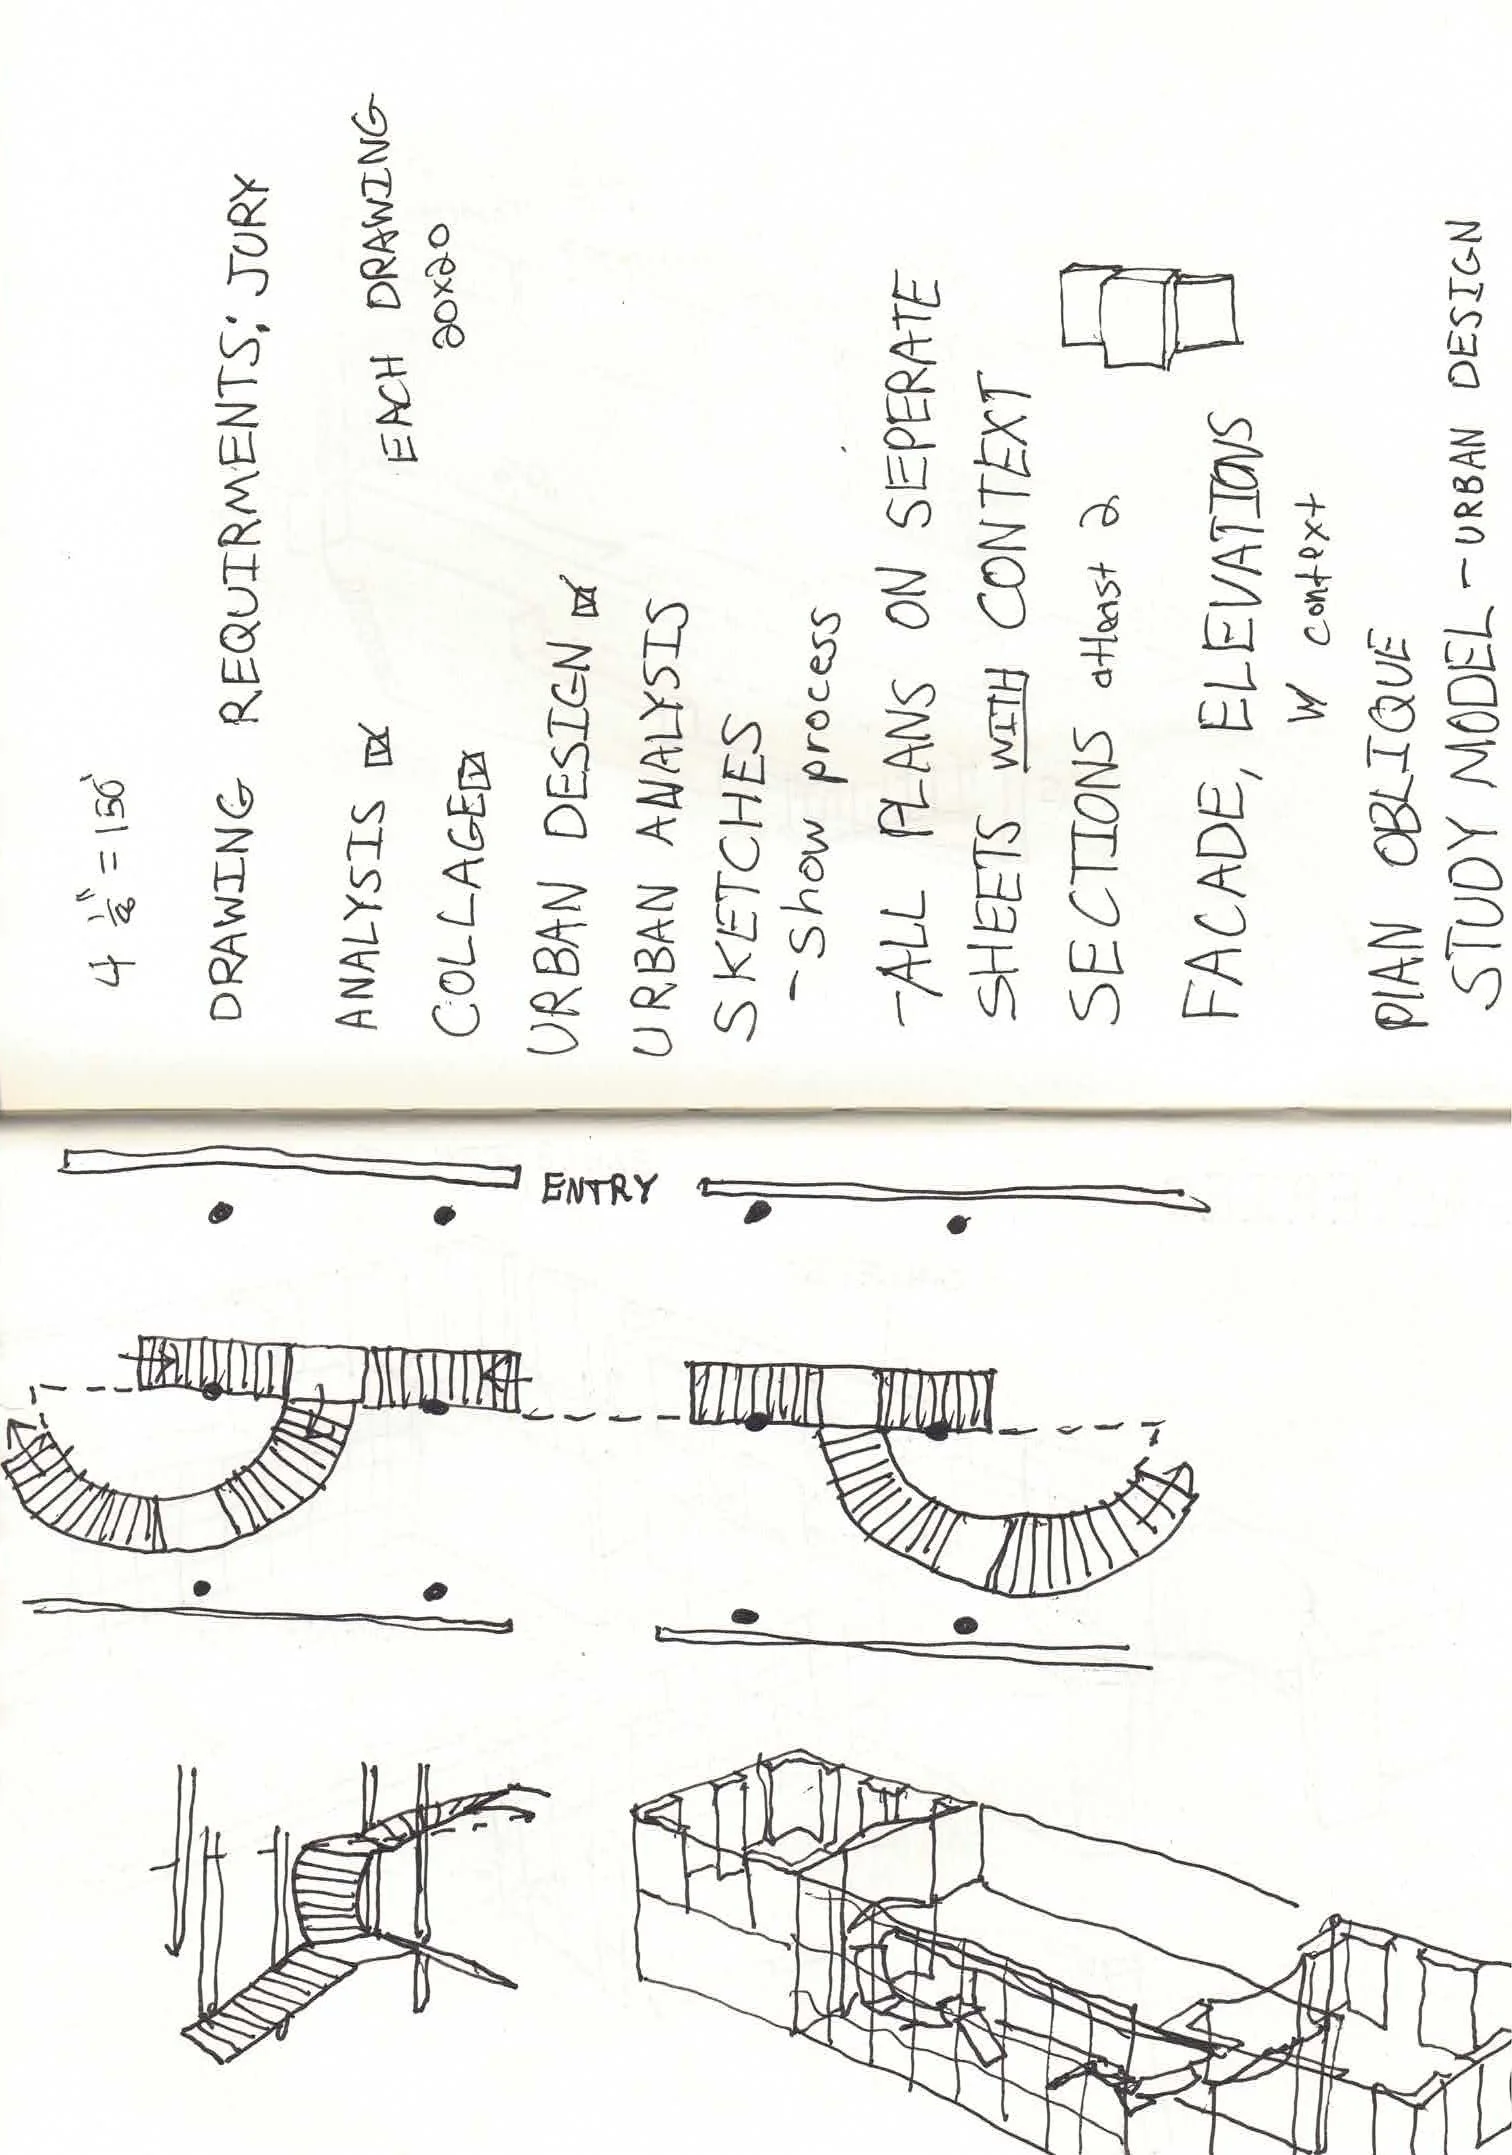 4 1/8" = 150'
DRAWING REQUIRMENTS; JURY
ANALYSIS ☑
EACH DRAWING
20x20
COLLAGE ☑
URBAN DESIGN ☑
URBAN ANALYSIS
SKETCHES
- Show process
- ALL PLANS ON SEPERATE
SHEETS WITH CONTEXT
SECTIONS atleast 2
FACADE, ELEVATIONS
W context
PLAN OBLIQUE
STUDY MODEL - URBAN DESIGN
ENTRY